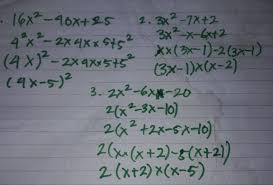 1. 16x² - 40x + 25
4²x² - 2x4xx5+5²
(4x)² - 2x4xx5+5²
(4x-5)²
2. 3x² - 7x + 2
3x² - x - 6x + 2
x x (3x-1) - 2(3x-1)
(3x-1) x (x-2)
3. 2x² - 6x - 20
2(x² - 3x - 10)
2(x² + 2x - 5x - 10)
2(x x (x+2) - 5(x+2))
2(x+2) x (x-5)